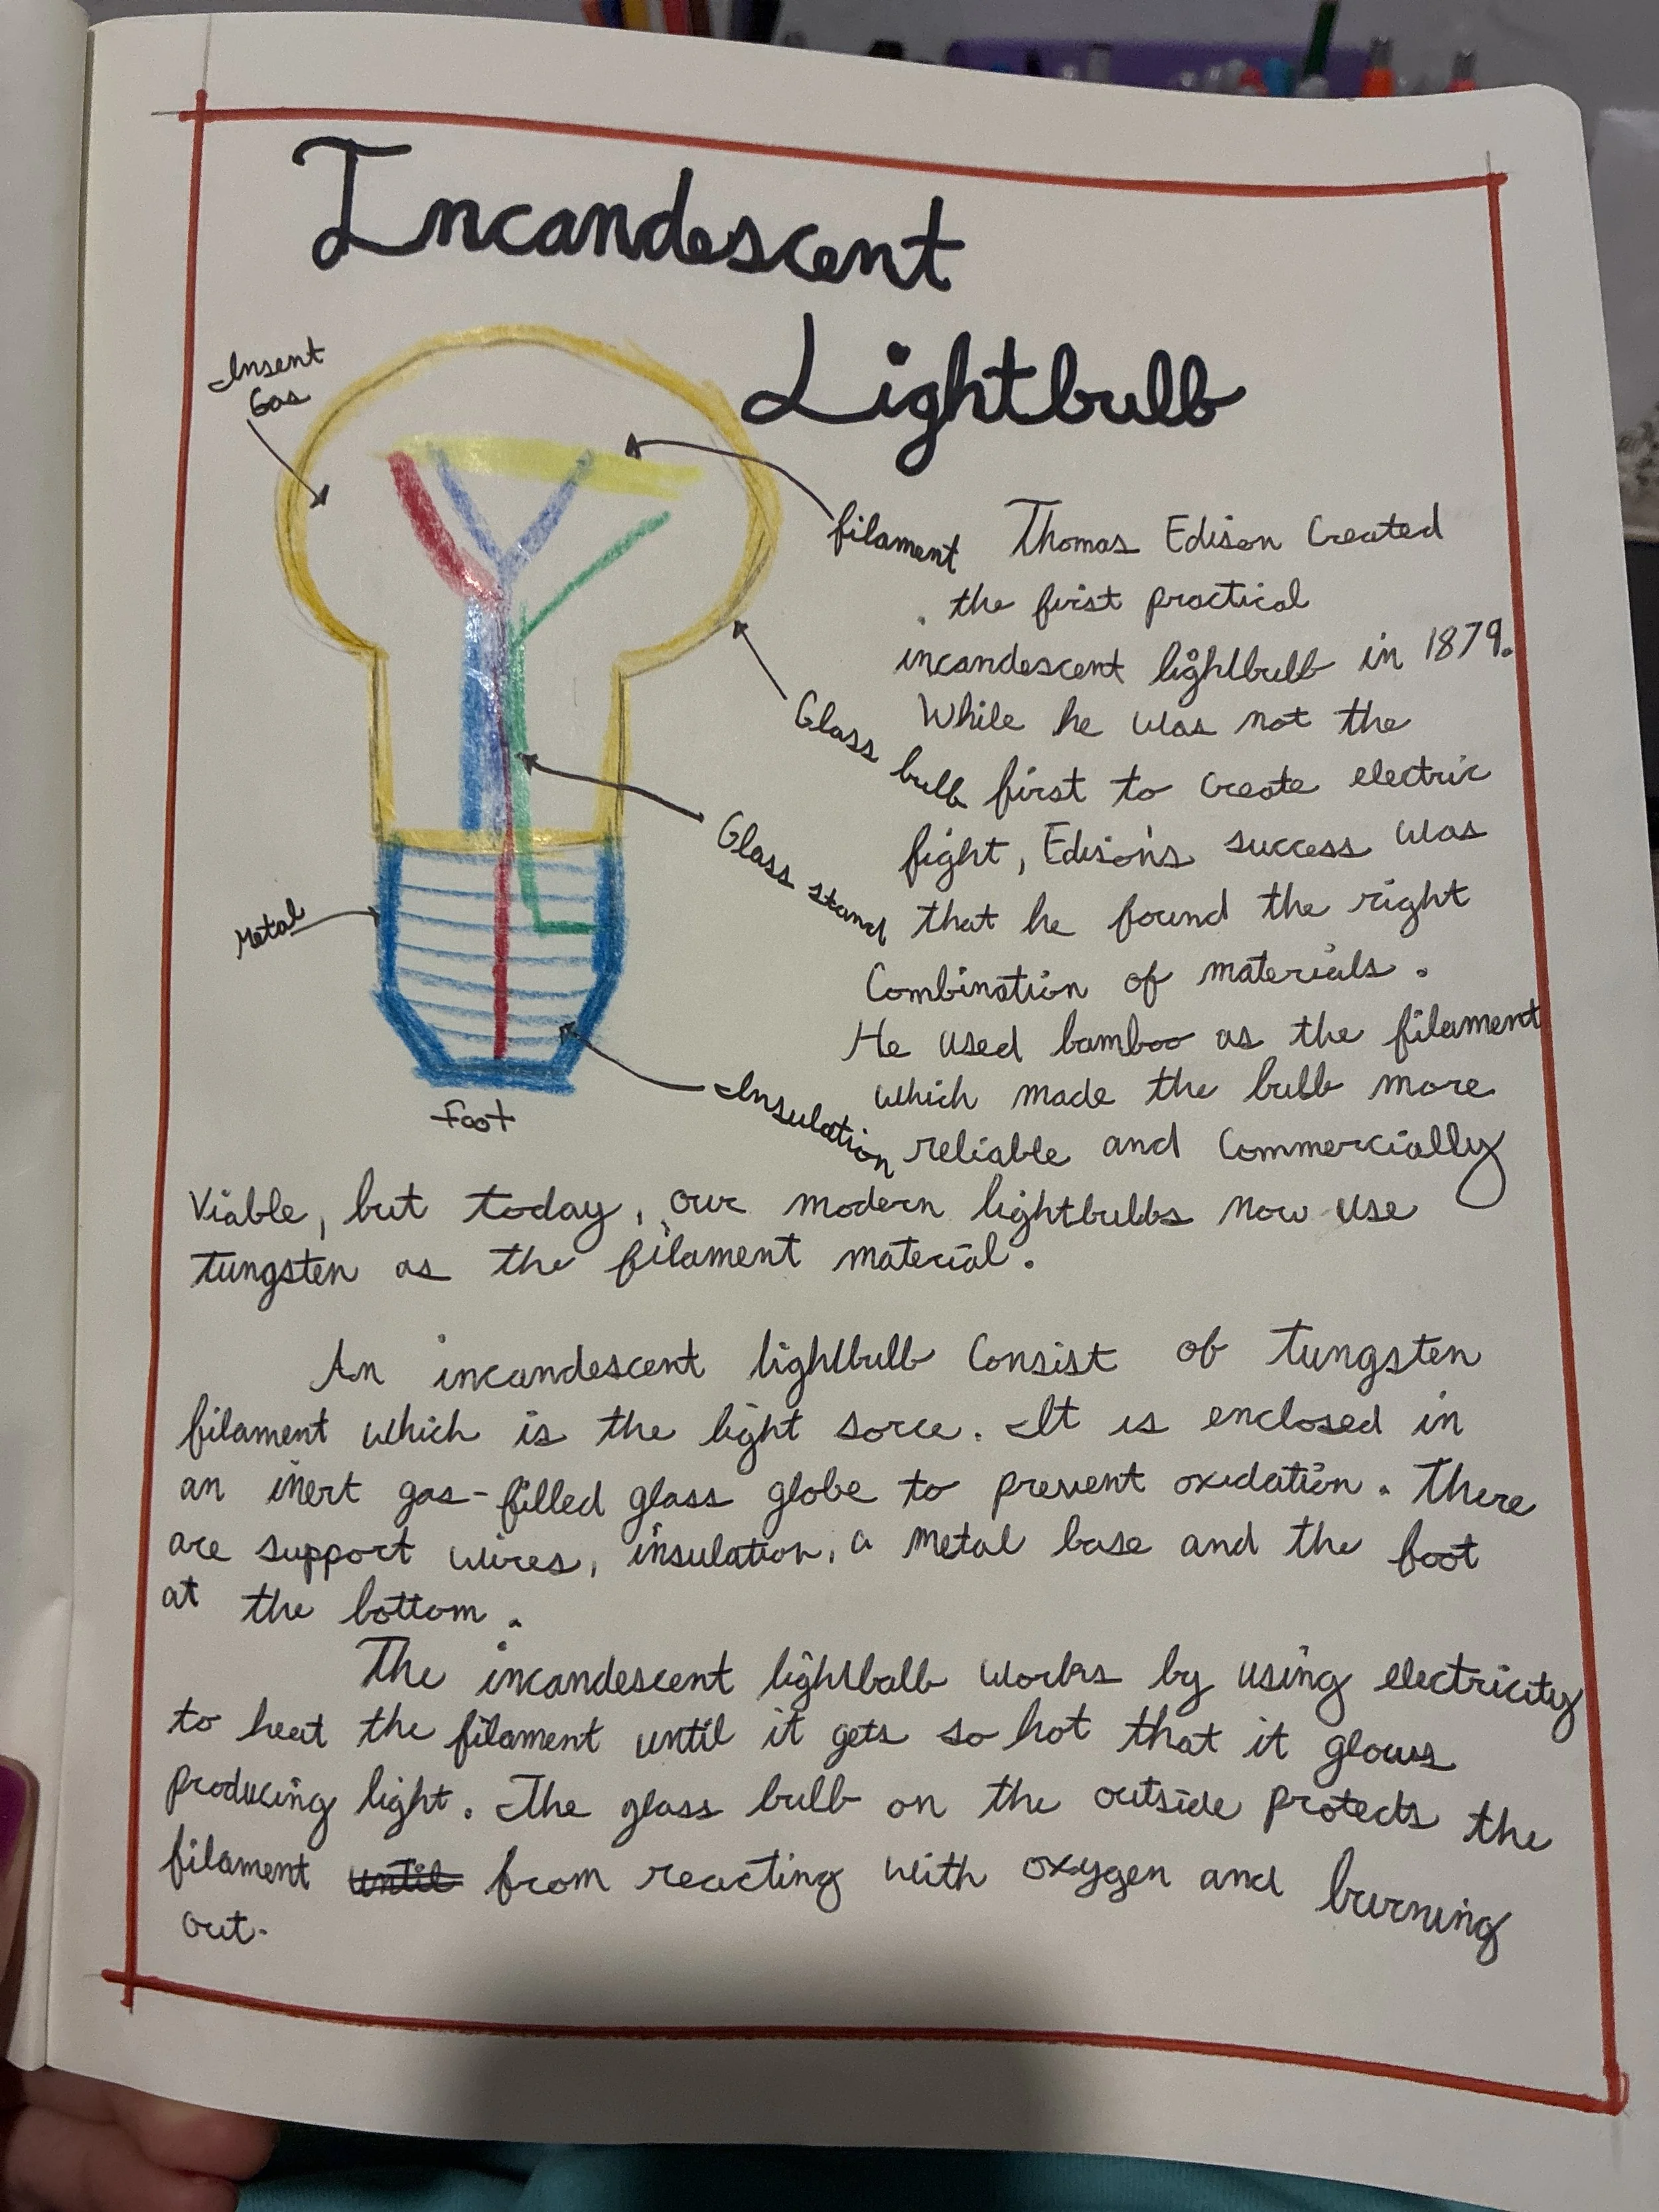 Incandescent
Lightbulb
Insent
Gas
filament
Glass bulb
Glass stand
Metal
Insulation
foot
Thomas Edison Created
the first practical
incandescent lightbulb in 1879.
While he was not the
first to create electric
fight, Edison's success was
that he found the right
Combination of materials.
He used bamboo as the filament
which made the bulb more
reliable and Commercially
Viable, but today, our modern lightbulbs now use
tungsten as the filament material.
An incandescent lightbulb Consist of tungsten
filament which is the light sorce. It is enclosed in
an inert gas-filled glass globe to prevent oxidation. There
are support wires, insulation, a metal base and the foot
at the bottom.
The incandescent lightbulb works by using electricity
to heat the filament until it gets so hot that it glows
producing light. The glass bulb on the outside protects the
filament until from reacting with oxygen and burning
out.